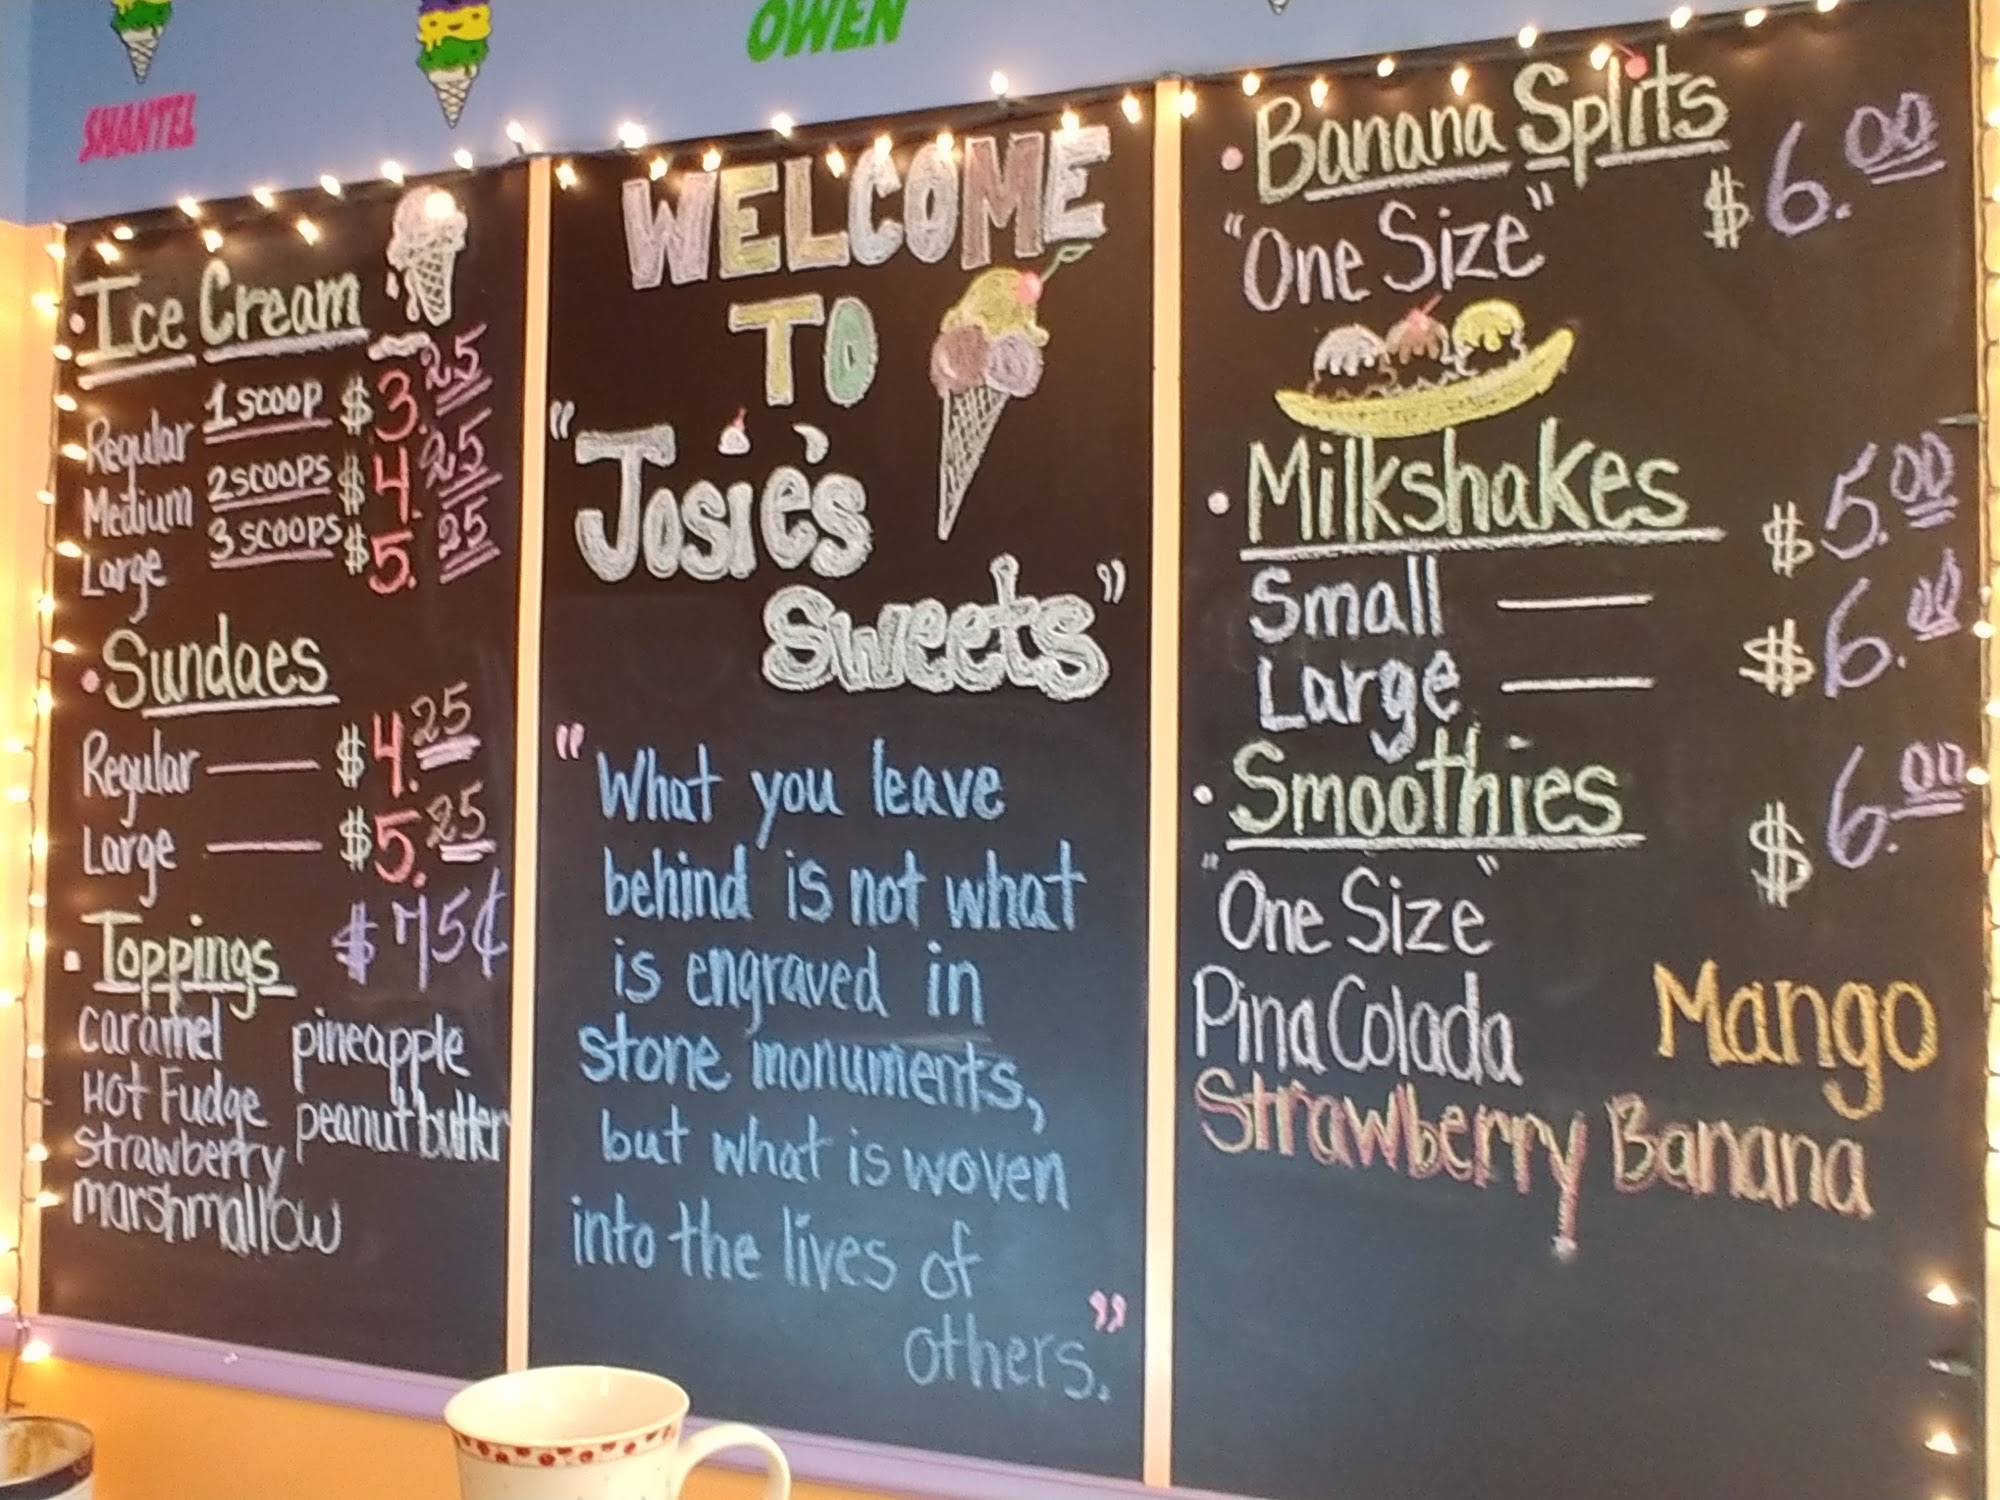 OWEN
SHANTEL
Ice Cream
Regular 1 scoop $3.25
Medium 2 scoops $4.25
Large 3 scoops $5.25
Sundaes
Regular — $4.25
Large — $5.25
Toppings $75¢
caramel pineapple
Hot Fudge peanut butter
strawberry
marshmallow
WELCOME
TO
"Josie's
Sweets"
"What you leave
behind is not what
is engraved in
stone monuments,
but what is woven
into the lives of
others."
Banana Splits $6.00
"One Size"
Milkshakes
Small — $5.00
Large — $6.00
Smoothies $6.00
"One Size"
Pina Colada Mango
Strawberry Banana